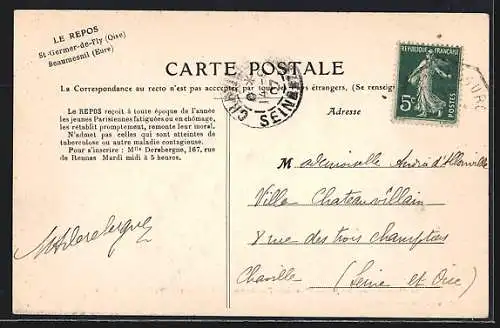 LE REPOS
St-Germer-de-Fly (Oise)
Beaumesnil (Eure)
CARTE POSTALE
La Correspondance au recto n'est pas acceptée par tous les pays étrangers, (Se renseign
Le REPOS reçoit à toute époque de l'année
les jeunes Parisiennes fatiguées ou en chômage,
les rétablit promptement, remonte leur moral.
N'admet pas celles qui sont atteintes de
tuberculose ou autre maladie contagieuse.
Pour s'inscrire : Mlle Dersbergne, 167, rue
de Rennes Mardi midi à 5 heures.
Adresse
REPUBLIQUE FRANÇAISE
5c
POSTES
Mademoiselle André d'Allonville
Villa Chateauvillain
8 rue des trois champtiers
Chaville (Seine et Oise)